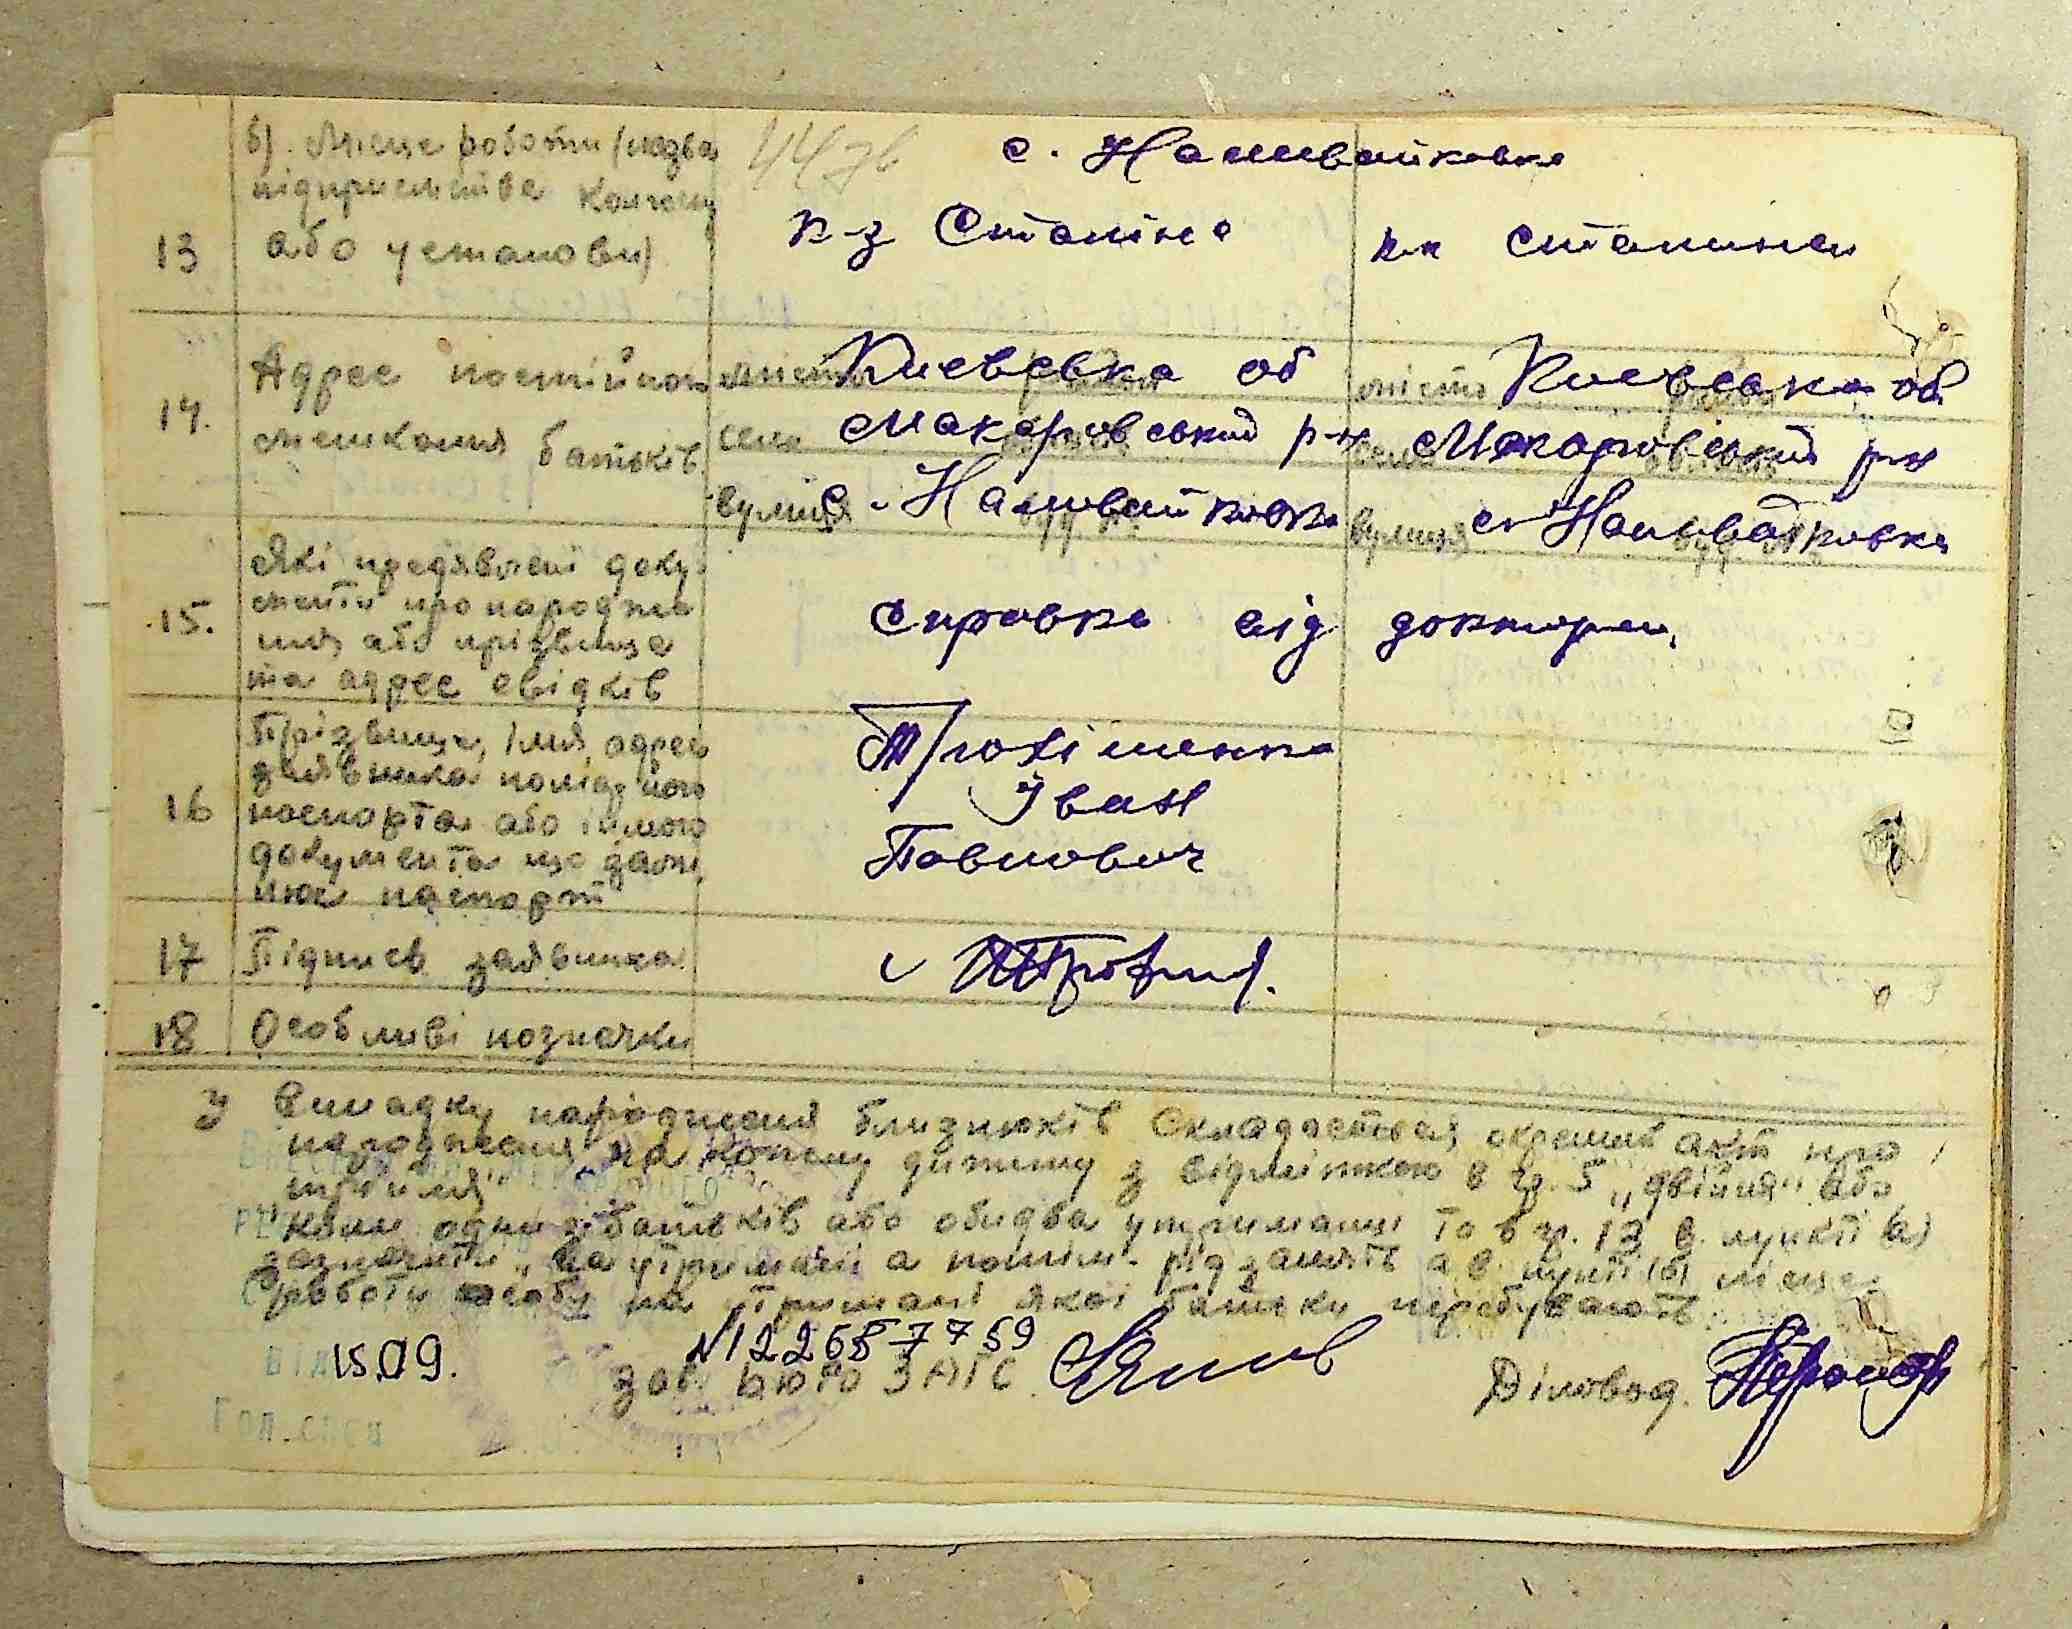 б). Місце роботи (назва
підприємства колгоспу
13 або установи)
4476 с. Наливайковка
к-з Сталіна к-з сталина
14. Адрес постійного
мешкання батьків
місто Киевська об місто Киевська об
село Макаровський р-н село Макаровський р-н
вулиця с. Наливайковка вулиця с. Наливайковка
Які предявлені доку
менти про народже
15. ння або прізвище
та адрес свідків
справка від доктора
Прізвище, імя, адрес
заявника номіар його
16 паспорта або іншого
документа що замі
нює паспорт
Трохіменко
Іван
Павлович
17 Підпись заявника
Трохим.
18 Особливі позначки
У випадку народження близнюків складається окремий акт про
народження на кожну дитину з відміткою в гр. 5 „двійня" або
трійня"
коли один з батьків або обидва утриманці то в гр. 13 в пункті (а)
зазначити „на утриманні а потім рід занять а в пункті (б) місце
роботи особи на утримані якої батьки перебувають
15.09. N 1226877 59
зав. Бюро ЗАГС Діловод.
Гол. спец